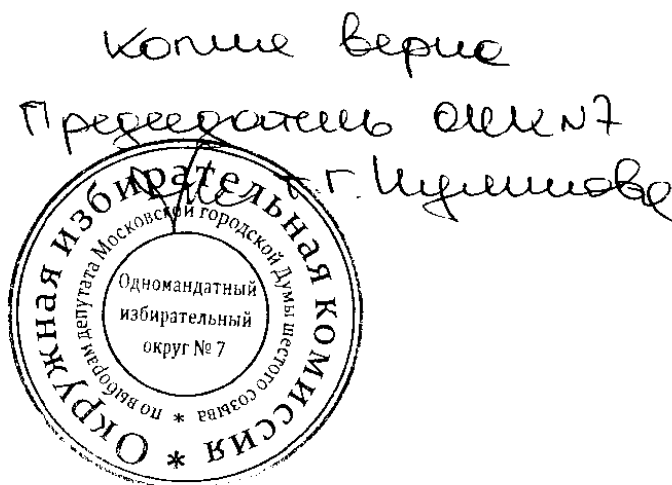 Копия верна
Председатель ОИК N7
Г.
Окружная избирательная комиссия *
по выборам депутата Московской городской Думы шестого созыва *
Одномандатный
избирательный
округ № 7